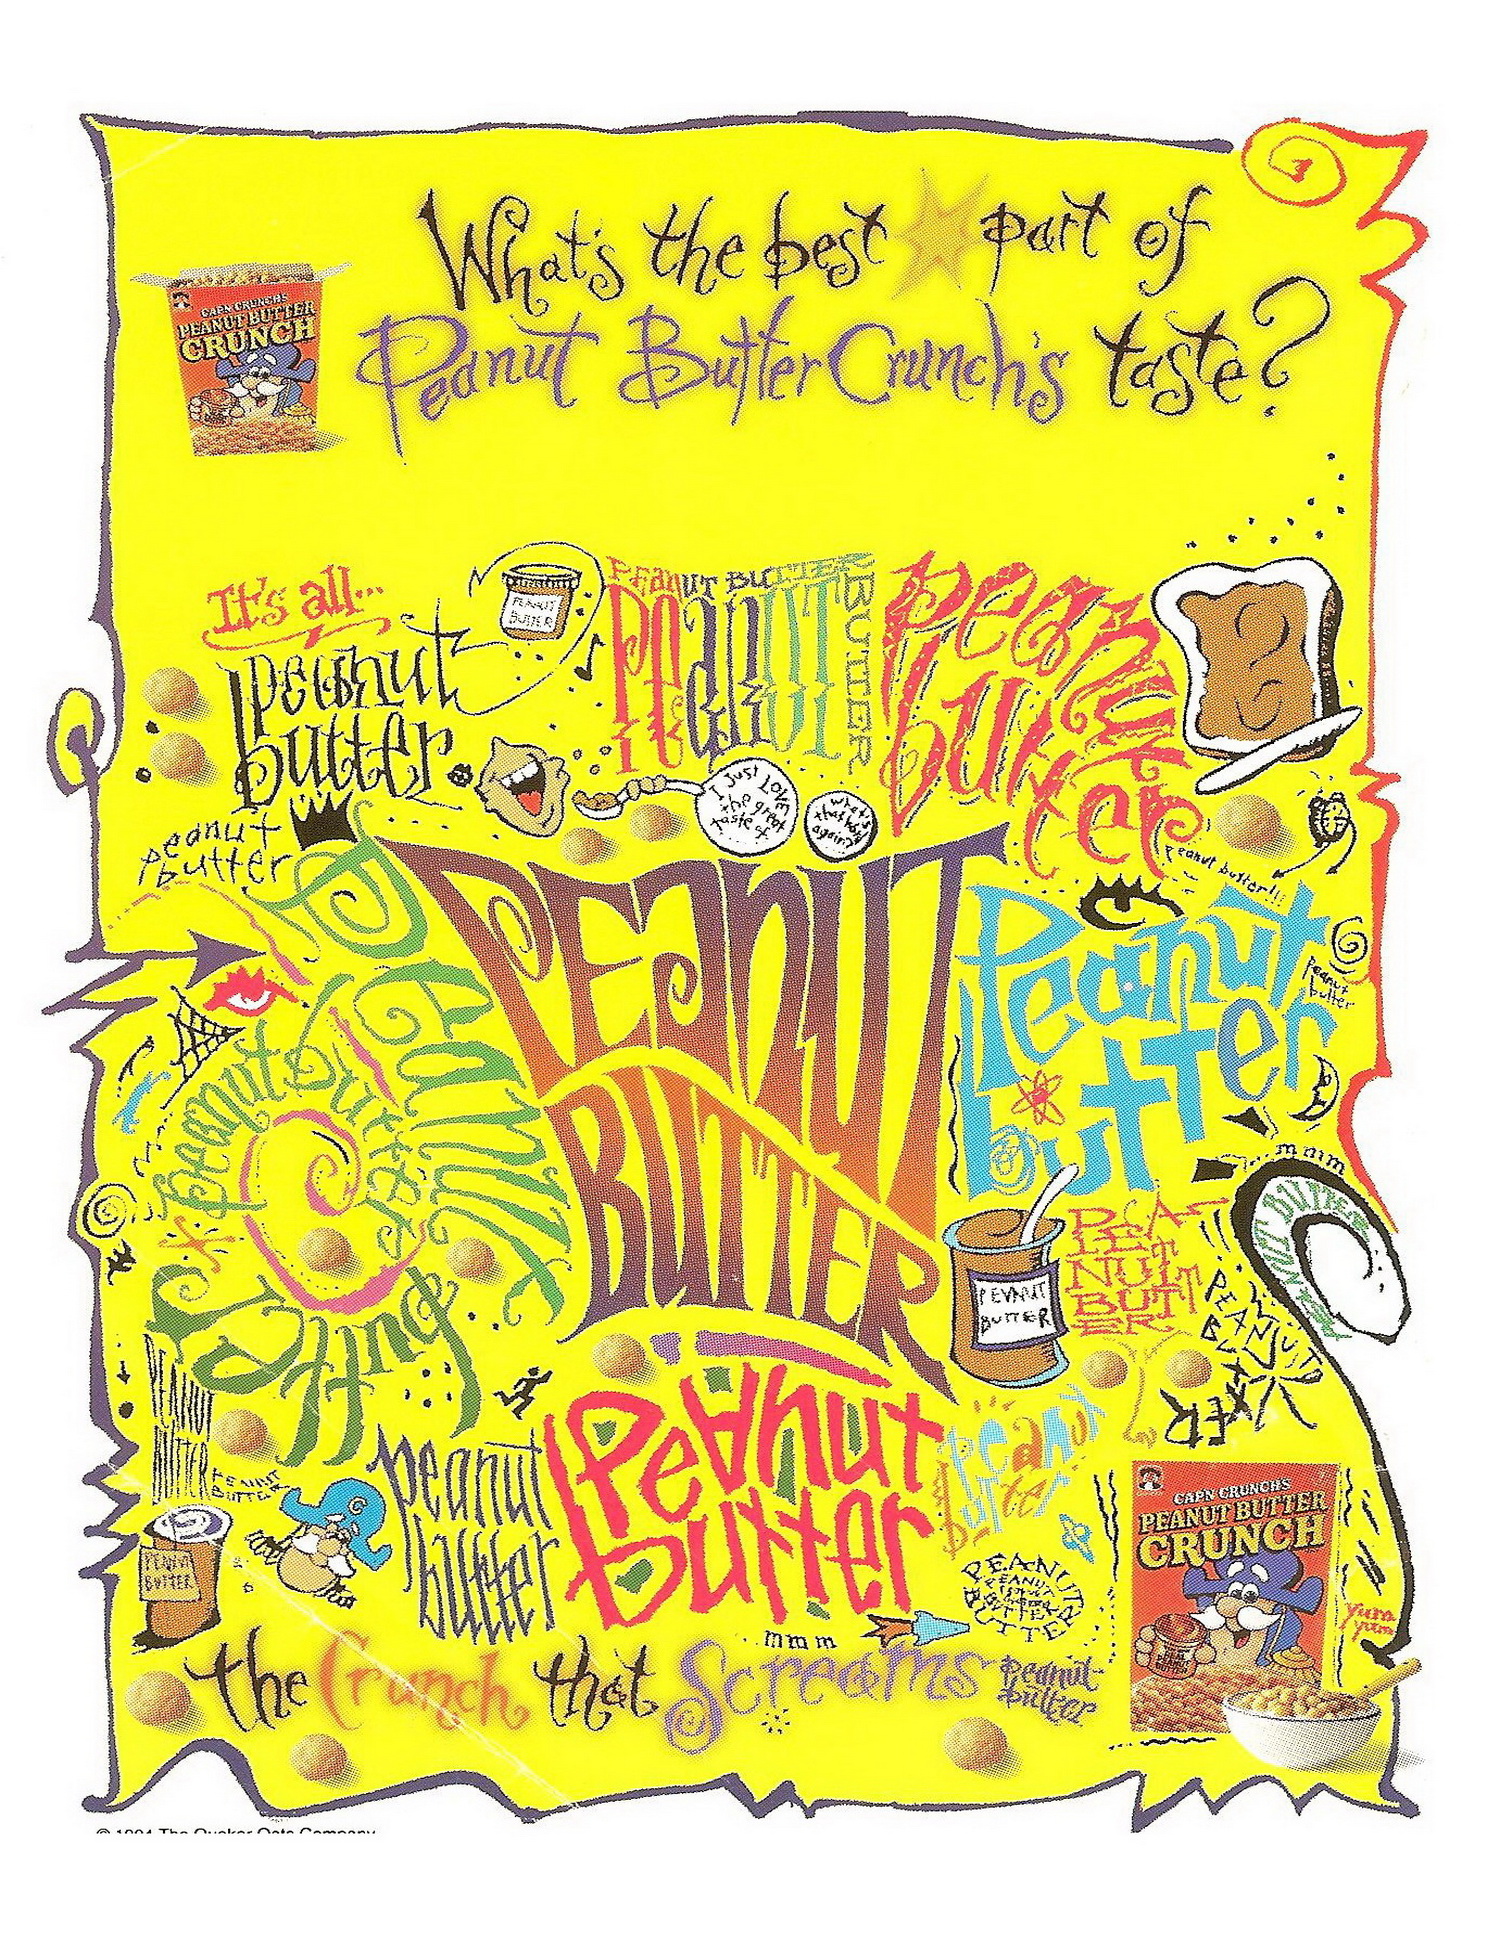 What's the best part of
Peanut Butter Crunch's taste?
CAP'N CRUNCH'S
PEANUT BUTTER
CRUNCH
It's all...
peanut
butter
PEANUT
BUTTER
PEANUT BUTTER
PEANUT
BUTTER
peanut
butter
I JUST LOVE
the great
taste of...
what's
that now
again?
peanut
butter
peanut butter!!!
PEANUT
BUTTER
Peanut
butter
peanut
butter
Peanut
Butter
peanut butter
mmm
PEANUT BUTTER
PEANUT
BUTTER
PEA-
PE
NUT
BUTT
ER
PEANUT
BUTTER
PEANUT
BUTTER
PEANUT
BUTTER
PEANUT
BUTTER
peanut
butter
Peanut
butter
peanut
butter
PEANUT
PEANUT
BUTTER
BUTTER
CAP'N CRUNCH'S
PEANUT BUTTER
CRUNCH
yum
yum
mmm
the Crunch that Screams
peanut
butter
© 1994 The Quaker Oats Company